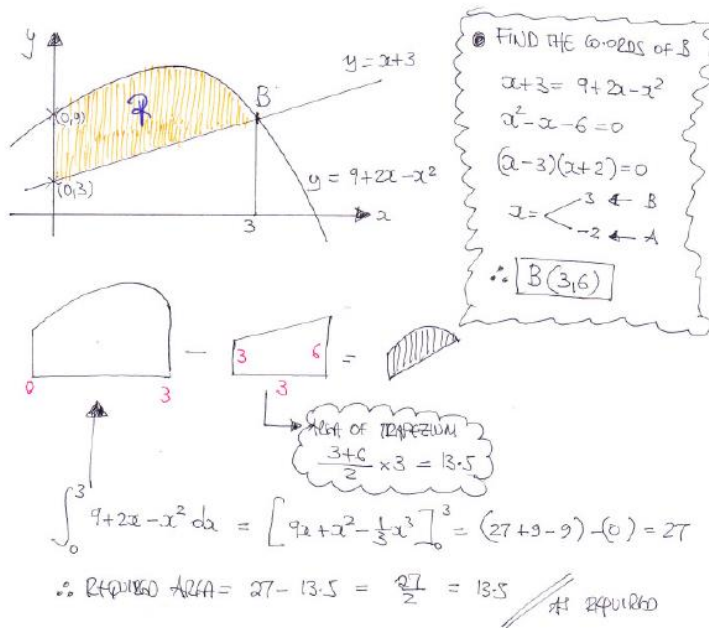 y
y=x+3
B
R
(0,9)
(0,3)
y=9+2x-x²
x
3
FIND THE CO.ORDS OF B
x+3 = 9+2x-x²
x²-x-6=0
(x-3)(x+2)=0
x= 3 ← B
-2 ← A
∴ B(3,6)
0 3 - 3 6 3 =
AREA OF TRAPEZIUM
3+6/2 ×3 = 13.5
∫₀³ 9+2x-x² dx = [9x+x²-⅓x³]₀³ = (27+9-9)-(0) = 27
∴ REQUIRED AREA = 27-13.5 = 27/2 = 13.5
AS REQUIRED